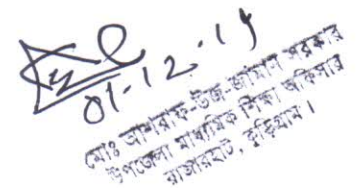 01-12-19
মোঃ আশরাফ-উজ-জামান সরকার
উপজেলা মাধ্যমিক শিক্ষা অফিসার
রাজারহাট, কুড়িগ্রাম।